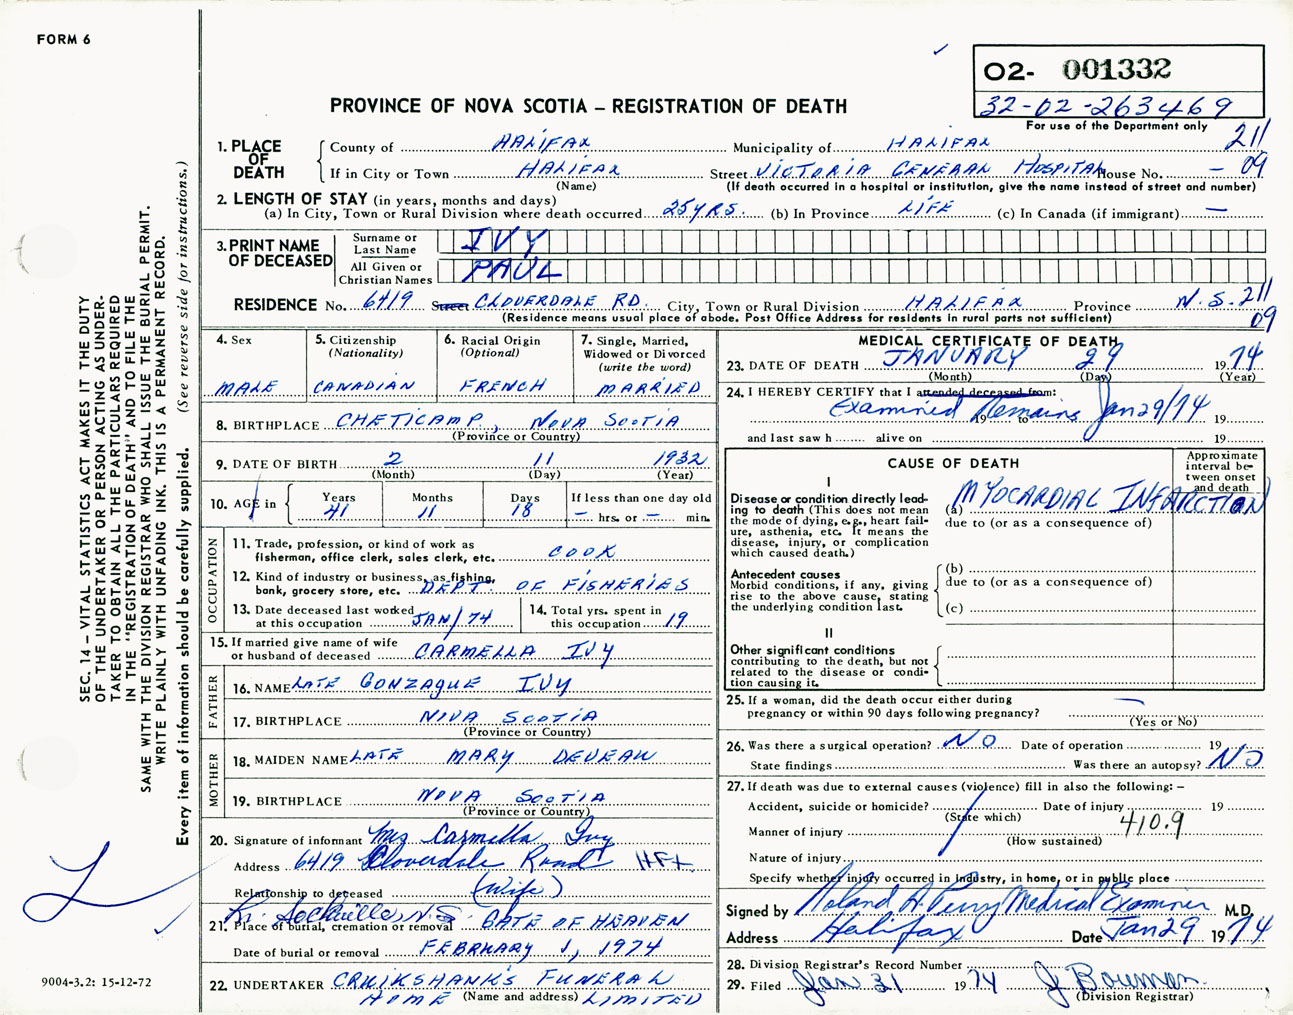 FORM 6
O2- 001332
32-02-263469
For use of the Department only
PROVINCE OF NOVA SCOTIA – REGISTRATION OF DEATH
211
09
1. PLACE OF DEATH
County of HALIFAX Municipality of HALIFAX
If in City or Town HALIFAX Street VICTORIA GENERAL HOSPITAL House No. –
(Name) (If death occurred in a hospital or institution, give the name instead of street and number)
2. LENGTH OF STAY (in years, months and days)
(a) In City, Town or Rural Division where death occurred 25 YRS. (b) In Province LIFE (c) In Canada (if immigrant) —
3. PRINT NAME OF DECEASED
Surname or Last Name IVY
All Given or Christian Names PAUL
RESIDENCE No. 6419 Street CLOVERDALE RD. City, Town or Rural Division HALIFAX Province N.S. 211
(Residence means usual place of abode. Post Office Address for residents in rural parts not sufficient) 09
4. Sex
MALE
5. Citizenship
(Nationality)
CANADIAN
6. Racial Origin
(Optional)
FRENCH
7. Single, Married,
Widowed or Divorced
(write the word)
MARRIED
8. BIRTHPLACE CHETICAMP, NOVA SCOTIA
(Province or Country)
9. DATE OF BIRTH 2 11 1932
(Month) (Day) (Year)
10. AGE in
Years 41
Months 11
Days 18
If less than one day old
– hrs. or – min.
OCCUPATION
11. Trade, profession, or kind of work as
fisherman, office clerk, sales clerk, etc. COOK
12. Kind of industry or business, as fishing,
bank, grocery store, etc. DEPT. OF FISHERIES
13. Date deceased last worked
at this occupation JAN/74
14. Total yrs. spent in
this occupation 19
15. If married give name of wife
or husband of deceased CARMELLA IVY
FATHER
16. NAME LATE GONZAGUE IVY
17. BIRTHPLACE NOVA SCOTIA
(Province or Country)
MOTHER
18. MAIDEN NAME LATE MARY DEVEAU
19. BIRTHPLACE NOVA SCOTIA
(Province or Country)
20. Signature of informant Mrs Carmella Ivy
Address 6419 Cloverdale Road HFX
Relationship to deceased (Wife)
Sackville, N.S.
21. Place of burial, cremation or removal GATE OF HEAVEN
Date of burial or removal FEBRUARY 1, 1974
22. UNDERTAKER CRUIKSHANK'S FUNERAL
HOME (Name and address) LIMITED
MEDICAL CERTIFICATE OF DEATH
23. DATE OF DEATH JANUARY 29 1974
(Month) (Day) (Year)
24. I HEREBY CERTIFY that I attended deceased from:
Examined Remains Jan 29/74 19
19 to
and last saw h alive on 19
CAUSE OF DEATH
Approximate interval between onset and death
I
Disease or condition directly leading to death (This does not mean the mode of dying, e.g., heart failure, asthenia, etc. It means the disease, injury, or complication which caused death.)
(a) MYOCARDIAL INFARCTION
due to (or as a consequence of)
Antecedent causes
Morbid conditions, if any, giving rise to the above cause, stating the underlying condition last.
(b)
due to (or as a consequence of)
(c)
II
Other significant conditions
contributing to the death, but not related to the disease or condition causing it.
25. If a woman, did the death occur either during
pregnancy or within 90 days following pregnancy? —
(Yes or No)
26. Was there a surgical operation? NO Date of operation 19
State findings Was there an autopsy? NO
27. If death was due to external causes (violence) fill in also the following: –
Accident, suicide or homicide? Date of injury 19
(State which)
Manner of injury 410.9
(How sustained)
Nature of injury
Specify whether injury occurred in industry, in home, or in public place
Signed by Roland A. Perry Medical Examiner M.D.
Address Halifax Date Jan 29 1974
28. Division Registrar's Record Number
29. Filed Jan 31 1974 J Bowmen
(Division Registrar)
SEC. 14 – VITAL STATISTICS ACT MAKES IT THE DUTY
OF THE UNDERTAKER OR PERSON ACTING AS UNDER-
TAKER TO OBTAIN ALL THE PARTICULARS REQUIRED
IN THE "REGISTRATION OF DEATH" AND TO FILE THE
SAME WITH THE DIVISION REGISTRAR WHO SHALL ISSUE THE BURIAL PERMIT.
WRITE PLAINLY WITH UNFADING INK. THIS IS A PERMANENT RECORD.
Every item of information should be carefully supplied. (See reverse side for instructions.)
9004-3.2: 15-12-72